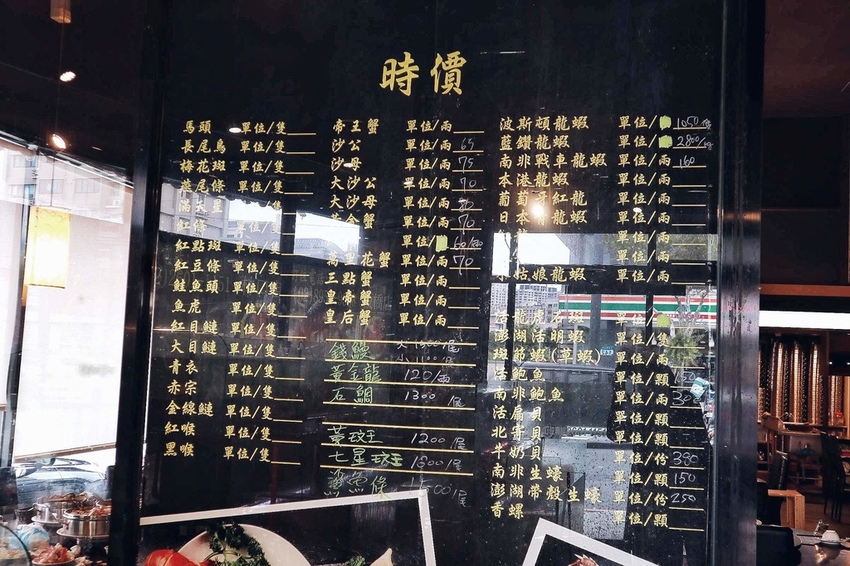 時價
馬頭 單位/隻
長尾鳥 單位/隻
梅花斑 單位/隻
燕尾條 單位/隻
滿天星 單位/隻
紅條 單位/隻
紅點斑 單位/隻
紅豆條 單位/隻
鮭魚頭 單位/隻
魚虎 單位/隻
紅目鰱 單位/隻
大目鰱 單位/隻
青衣 單位/隻
赤宗 單位/隻
金線鰱 單位/隻
紅喉 單位/隻
黑喉 單位/隻
帝王蟹 單位/兩
沙公 單位/兩 65
沙母 單位/兩 75
大沙公 單位/兩 70
大沙母 單位/兩
蟹 單位/兩 70
單位/ 60/兩
萬里花蟹 單位/兩 70
三點蟹 單位/兩
皇帝蟹 單位/兩
皇后蟹 單位/兩
錢鰻
黃金龍 120/兩
石鯛 1300
1200/尾
七星斑 1800/尾
條
波斯頓龍蝦 單位/ 1050
藍鑽龍蝦 單位/ 2800
南非戰車龍蝦 單位/兩 160
本港龍蝦 單位/兩
葡萄牙紅龍 單位/兩
日本龍蝦 單位/兩
單位/兩
單位/兩
姑娘龍蝦 單位/兩
活龍虎石蝦 單位/
澎湖活明蝦 單位/隻
斑節蝦(草蝦) 單位/兩
活鮑魚 單位/顆
南非鮑魚 單位/兩
活扇貝 單位/顆
北寄貝 單位/顆
牛奶貝 單位/份 380
南非生蠔 單位/顆 150
澎湖帶殼生蠔 單位/份 250
香螺 單位/顆